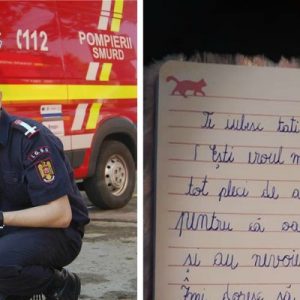 112
POMPIERII
SMURD
Te iubesc tati
Ești eroul m
tot pleci de a
pentru că oa
și au nevoie
Îmi doresc să